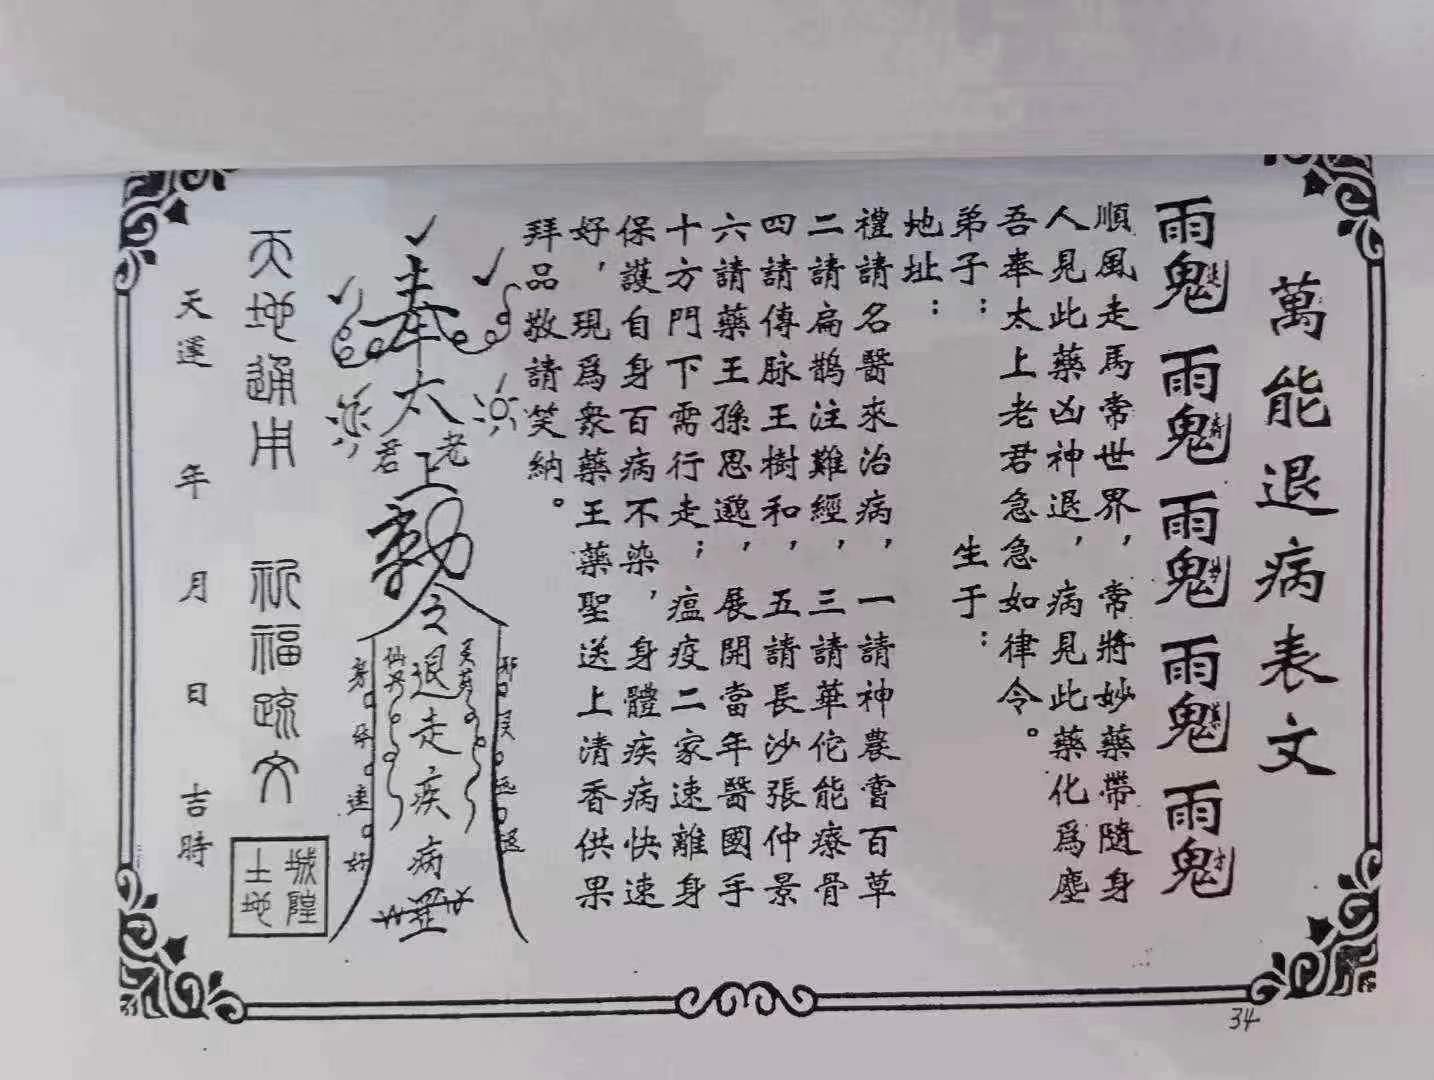 萬能退病表文
雨鬼 雨鬼 雨鬼 雨鬼 雨鬼
順風走馬常世界，常將妙藥帶隨身
人見此藥凶神退，病見此藥化爲塵
吾奉太上老君急急如律令。
弟子： 生于：
地址：
禮請名醫來治病，一請神農嘗百草
二請扁鵲注難經，三請華佗能療骨
四請傳脉王樹和，五請長沙張仲景
六請藥王孫思邈，展開當年醫國手
十方門下需行走；瘟疫二家速離身
保護自身百病不染，身體疾病快速
好，現爲衆藥王藥聖送上清香供果
拜品敬請笑納。
奉太上老君勅令退走疾病罡
仙丹
身体速好
天地通用 祈福疏文
城隍土地
天運 年 月 日 吉時
34